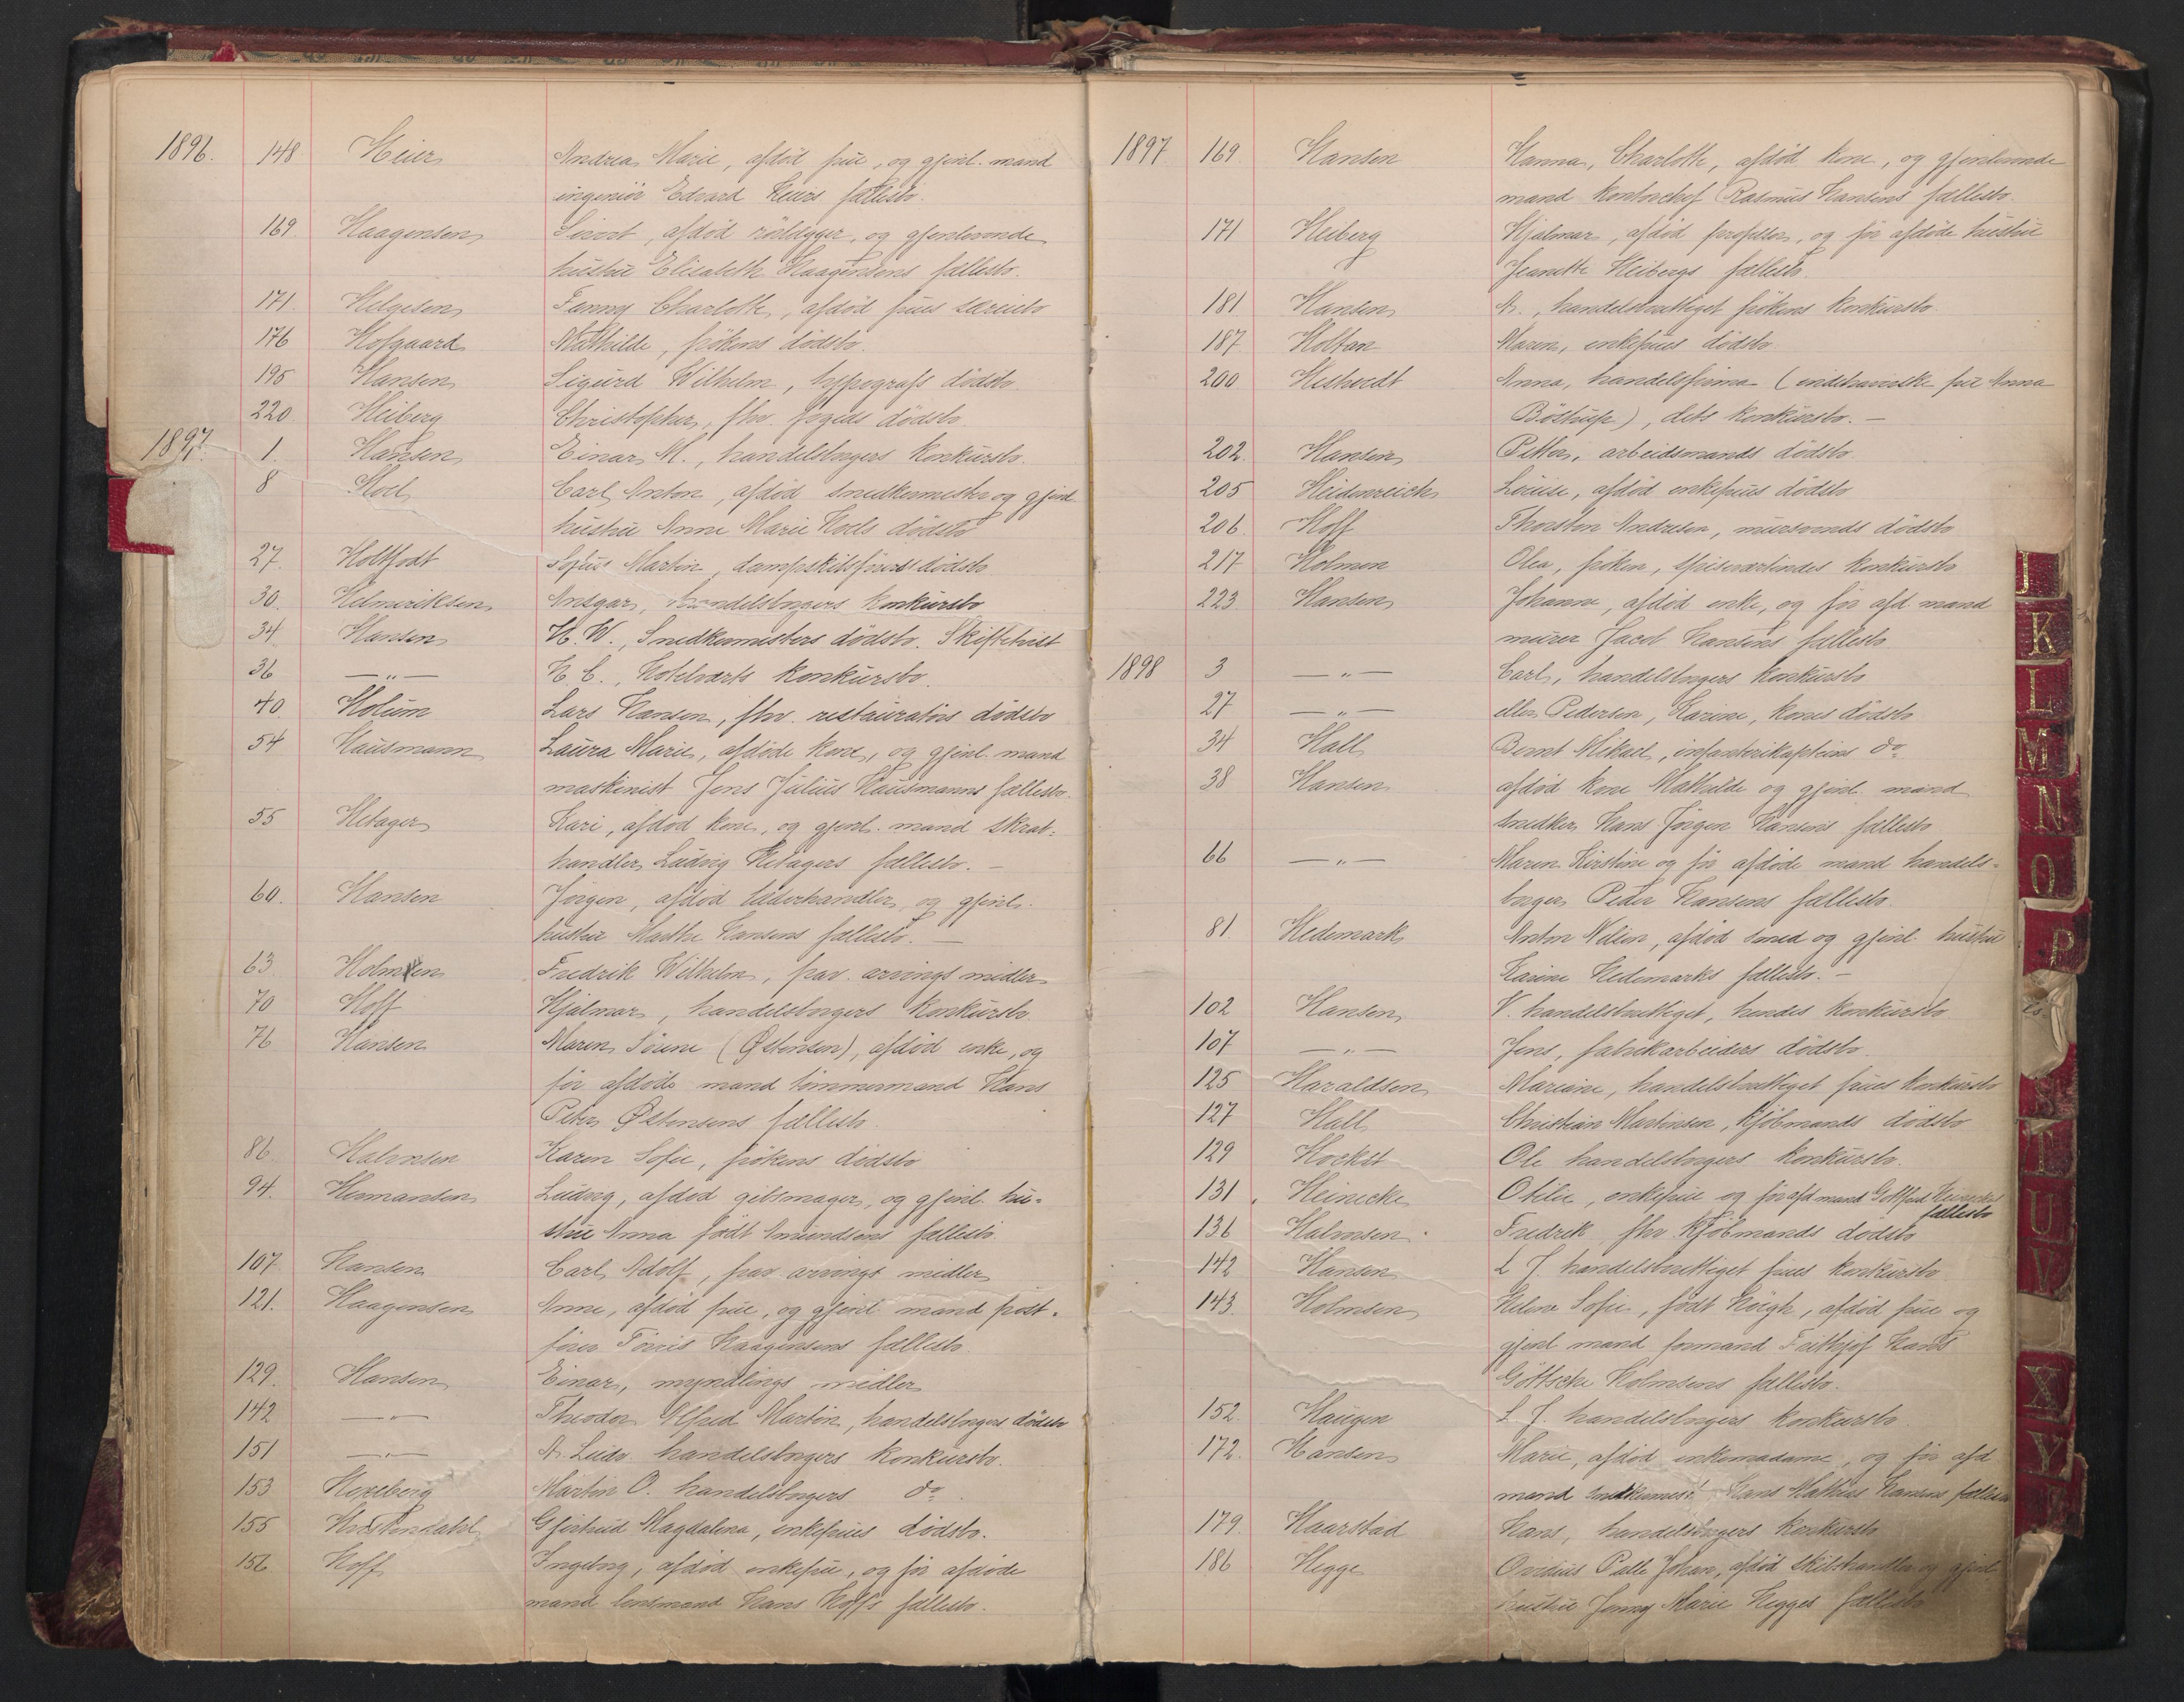 1896. 148 Heier Andrea Marie, afdød frue, og gjenl. mand
ingeniør Edvard Heiers fællesbo.
169. Haagensen Sivert, afdød rørlægger, og gjenlevende
hustru Elisabeth Haagensens fællesbo.
171. Helgesen Fanny Charlotte, afdød frues særeiebo
176 Hofgaard Mathilde, frökens dödsbo.
195 Hansen Sigurd Wilhelm, typografs dödsbo
220 Heiberg Christopher, fhv. fogeds dödsbo
1897. 1. Hansen Einar M., handelsborgers konkursbo.
8 Hoel Carl Anton, afdød snedkermester og gjenl.
hustru Anne Marie Hoels dødsbo
27. Holtfodt Sofus Martin, dampskibsförers dödsbo
30. Helmeriksen Ansgar, handelsborgers konkursbo
34. Hansen H. W., Snedkermesters dödsbo. Skiftetvist
36 — „ — H. C., Hotelværts konkursbo.
40. Holum Lars Hansen, fhv. restauratörs dödsbo
54 Hausmann Laura Marie, afdöde kone, og gjenl. mand
maskinist Jens Julius Hausmanns fællesbo.
55 Hetager Kari, afdød kone, og gjenl. mand skrab-
handler Ludvig Hetagers fællesbo. —
60. Hansen Jörgen, afdød læderhandler, og gjenl.
hustru Marthe Hansens fællesbo. —
63 Holmsen Fredrik Wilhelm, frav. arvings midler
70 Hoff Hjalmar, handelsborgers konkursbo
76 Hansen Maren Sörine (Østensen), afdød enke, og
för afdöde mand tömmermand Hans
Peter Østensens fællesbo.
86. Halvorsen Karen Sofie, frökens dödsbo
94. Hermansen Ludvig, afdød gibsmager, og gjenl. hu-
stru Anna født Amundsens fællesbo.
107. Hansen Carl Adolf, frav arvings midler
121. Haagensen Anne, afdød frue, og gjenl mand post-
fører Tørris Haagensens fællesbo.
129. Hansen Einar, myndlings midler
142 — „ — Theodor Alfred Martin, handelsborgers dödsbo
151 — „ — A. Ludv. handelsborgers konkursbo.
153 Hexeberg Martin O. handelsborgers do
155 Gjertrud Magdalena, enkefrues dödsbo.
156 Hoff Ingeborg, afdød enkefrue, og för afdöde
mand lensmand Hans Hoffs fællesbo.
1897 169. Hansen Hanna Charlotte, afdød kone, og gjenlevende
mand kontorchef Rasmus Hansens fællesbo.
171 Heiberg Hjalmar, afdød professor, og för afdöde hustru
Jeanette Heibergs fællesbo.
181 Hansen A., handelsberettiget frökens konkursbo.
187 Holtan Maren, enkefrues dödsbo
200 Anna, handelsfirma (indehaverske frue Anna
Böstrup), dets konkursbo. —
202. Hansen Petter, arbeidsmands dödsbo
205 Heidenreich Louise, afdød enkefrues dödsbo
206 Hoff Thorsten Andresen, mursvends dödsbo
217 Holmen Olea, fröken, spiseværtindes konkursbo
223. Hansen Johanne, afdød enke, og för afd mand
murer Jacob Hansens fællesbo
1898 3 — „ — Carl, handelsborgers konkursbo
27 — „ — eller Pedersen, Karine, kones dödsbo
34 Hall Bernt Mikael, infanterikapteins do
38 Hansen afdød kone Mathilde og gjenl. mand
snedker Hans Jörgen Hansens fællesbo
66 — „ — Maren Kirstine og för afdöde mand handels-
borger Peder Hansens fællesbo.
81 Hedemark Anton Nilsen, afdød smed og gjenl. hustru
Karine Hedemarks fællesbo. —
102 Hansen V. handelsberettiget, hendes konkursbo
107 — „ — Jens, fabrikarbeiders dödsbo.
125 Haraldsen Mariane, handelsberettiget frues konkursbo
127 Hall Christian Martinsen, Kjöbmands dödsbo
129 Ole handelsborgers konkursbo.
131 Heinecke Otilie, enkefrue og för afd mand Gottfred Heineckes
fællesbo
136 Halvorsen Fredrik fhv. Kjöbmands dödsbo
142 Hansen L J. handelsberettiget frues konkursbo
143. Holmsen Helene Sofie, født afdød frue og
gjenl mand formand Frithjof Hans
Göttsche Holmsens fællesbo.
152. Haugen L. J. handelsborgers konkursbo.
172. Hansen Marie, afdød enkemadame, og för afd
mand snedkermest. Hans Mathias Hansens fællesbo
179. Haarstad Hans, handelsborgers konkursbo
186 Hegge Palle Johan, afdød skibshandler og gjenl
hustru Jenny Marie Hegges fællesbo
J
K
L
M
N
O
P
S
T
U
V
X
Y